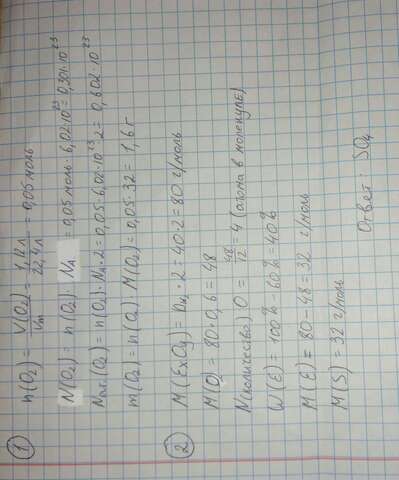 1
n(O₂) = V(O₂)/Vm = 1,12 л/22,4 л = 0,05 моль
N(O₂) = n(O₂) · NA = 0,05 моль · 6,02·10²³ = 0,301·10²³
Nат.(O₂) = n(O₂) · NA · 2 = 0,05 · 6,02·10²³ · 2 = 0,602·10²³
m(O₂) = n(O₂) · M(O₂) = 0,05 · 32 = 1,6 г
2
M(ExOy) = DH₂ · 2 = 40 · 2 = 80 г/моль
M(O) = 80 · 0,6 = 48
N(количество) O = 48/12 = 4 (атома в молекуле)
W(E) = 100% - 60% = 40%
M(E) = 80 - 48 = 32 г/моль
M(S) = 32 г/моль
Ответ: SO₄